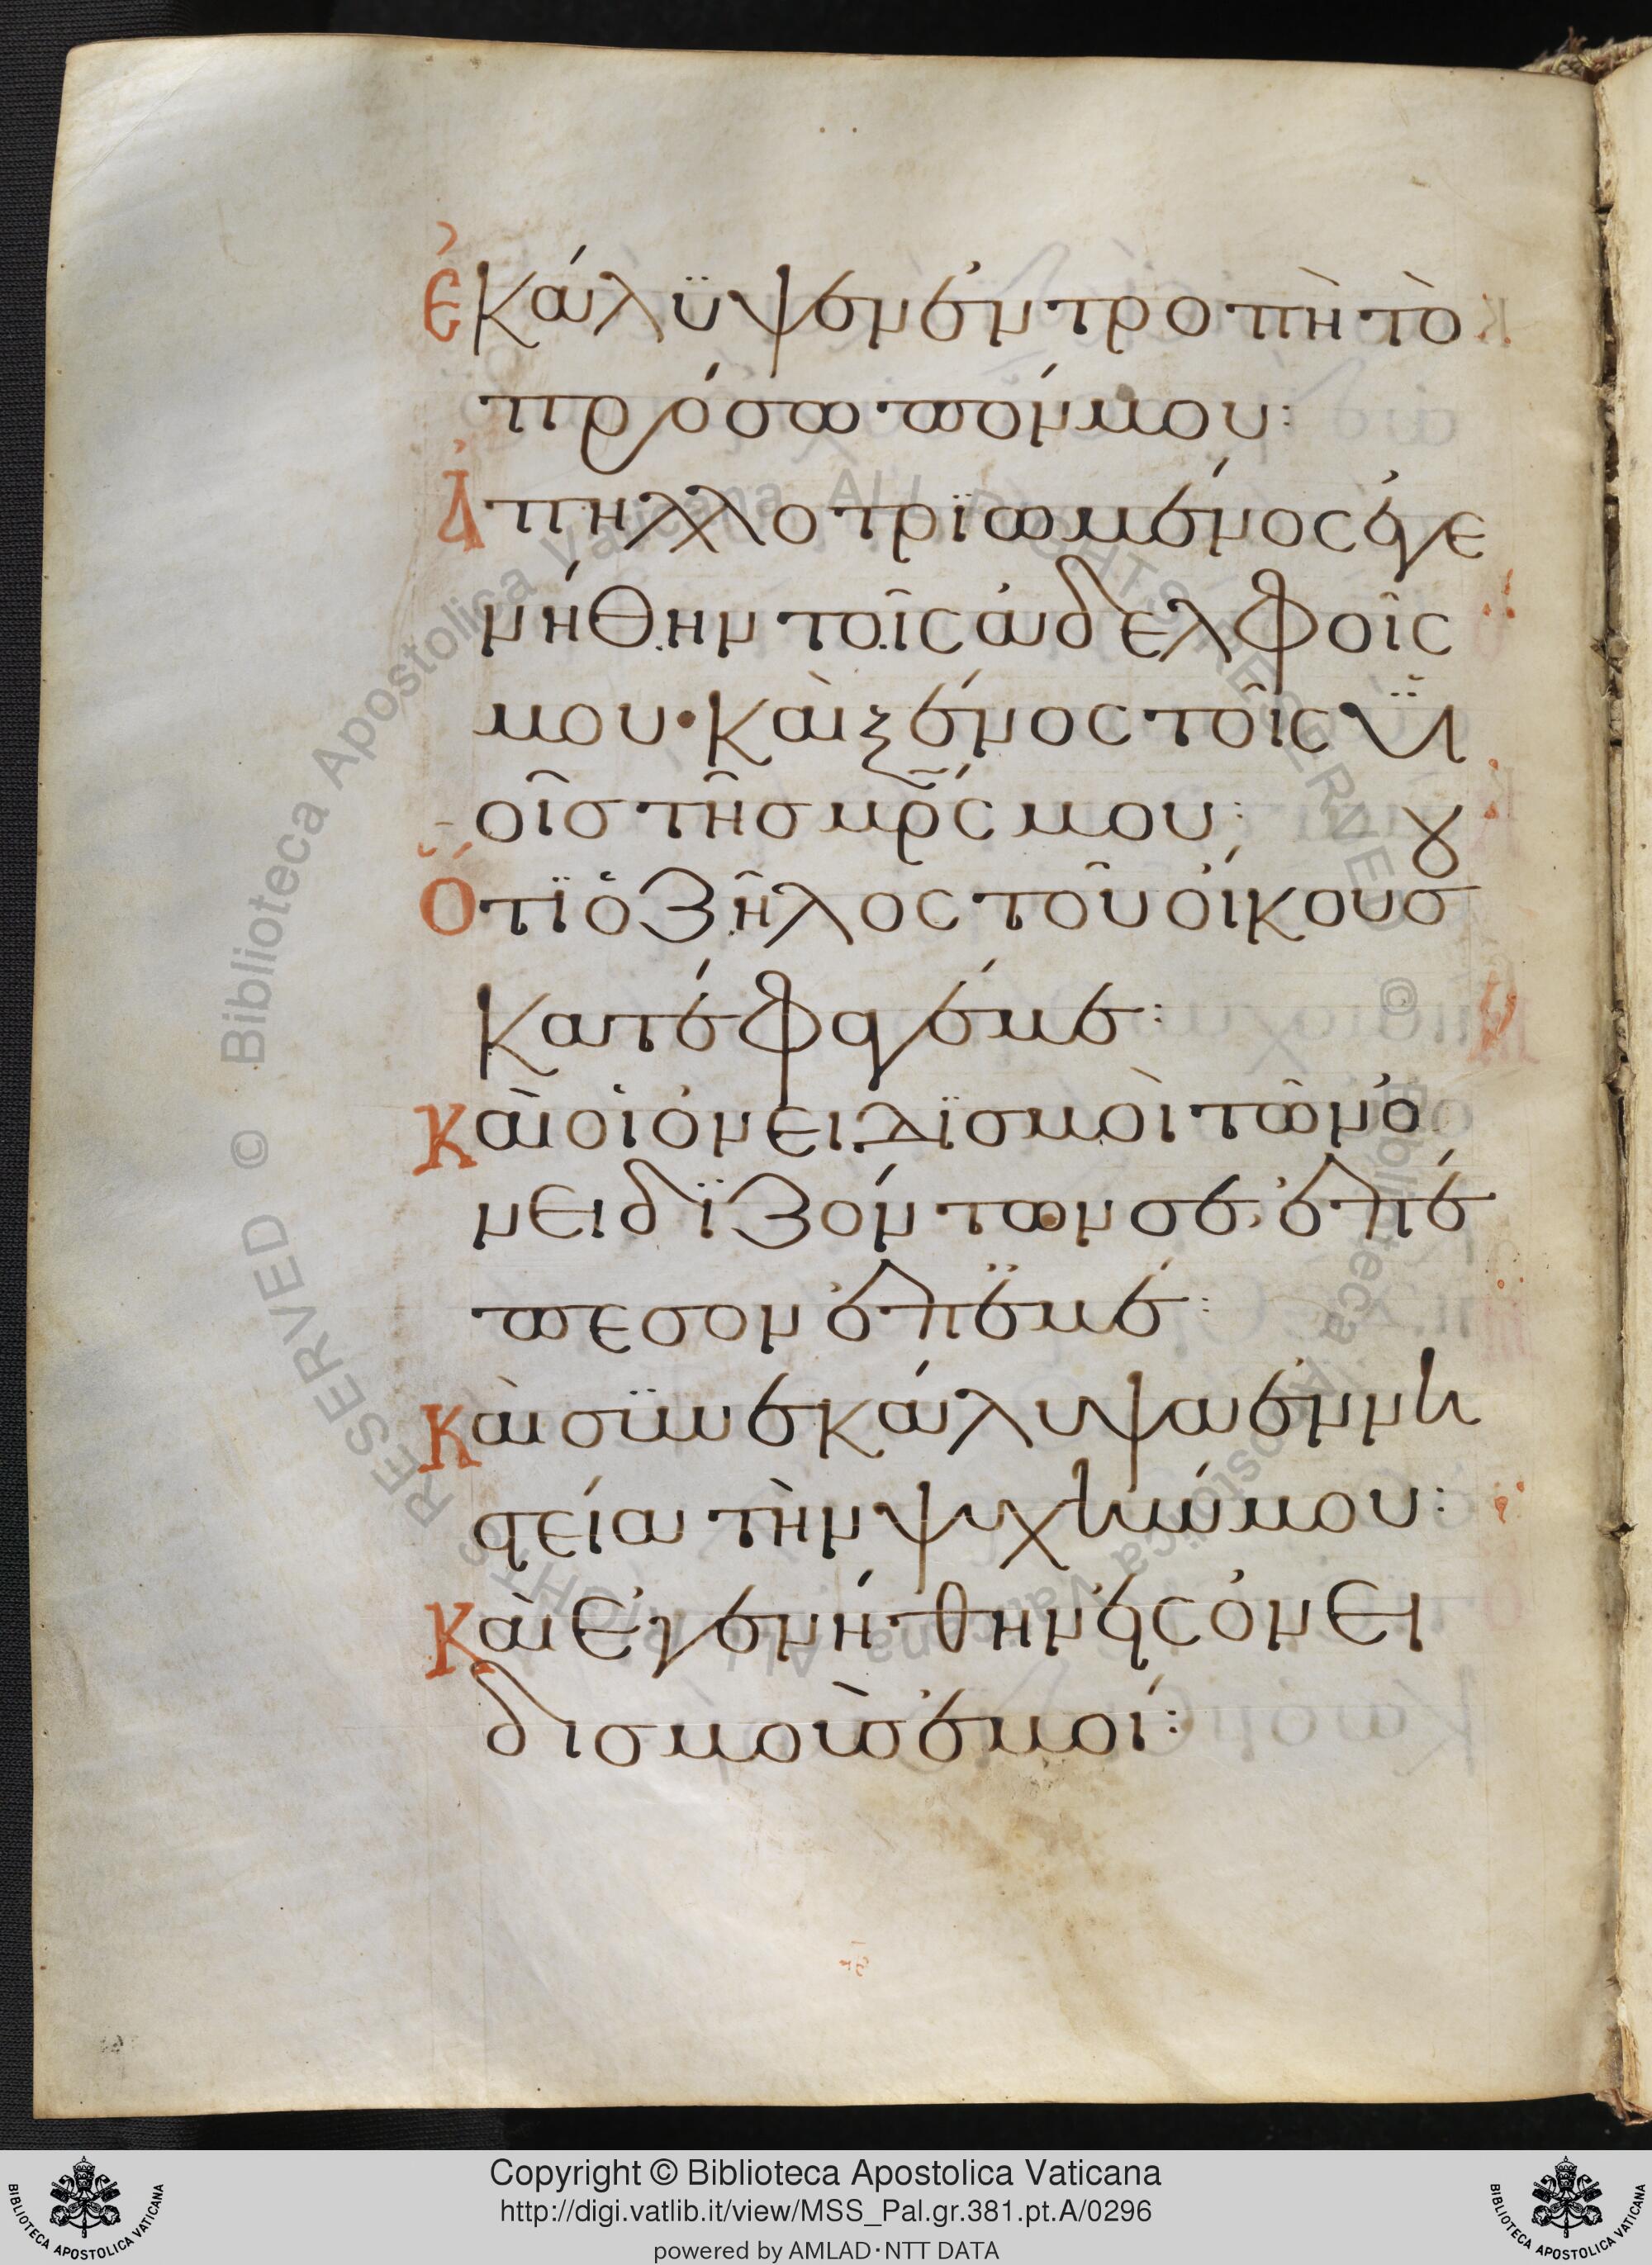 ἐκάλϋψεν ἐντροπὴ τὸ
πρόσωπόν μου:
Ἀπηλλοτρϊωμένος ἐγε
νήθην τοῖς ἀδελφοῖς
μου· καὶ ξένος τοῖς ϋἱ
οῖς τῆς μρ̅ς μου:
Ὅτϊ ὁ ζῆλος τοῦ οἴκου σου
κατέφαγέ με:
Καὶ οἱ ὀνειδϊσμοὶ τῶν ὀ
νειδϊζόντων σε, ἐπέ
πεσον ἐπ' ἐμέ:
Καὶ συνεκάλυψα ἐν νη
στεία τὴν ψυχήν μου:
Καὶ ἐγενήθη εἰς ὀνει
δισμοὺς ἐμοί:
Copyright © Biblioteca Apostolica Vaticana
http://digi.vatlib.it/view/MSS_Pal.gr.381.pt.A/0296
powered by AMLAD·NTT DATA
BIBLIOTECA APOSTOLICA VATICANA
BIBLIOTECA APOSTOLICA VATICANA